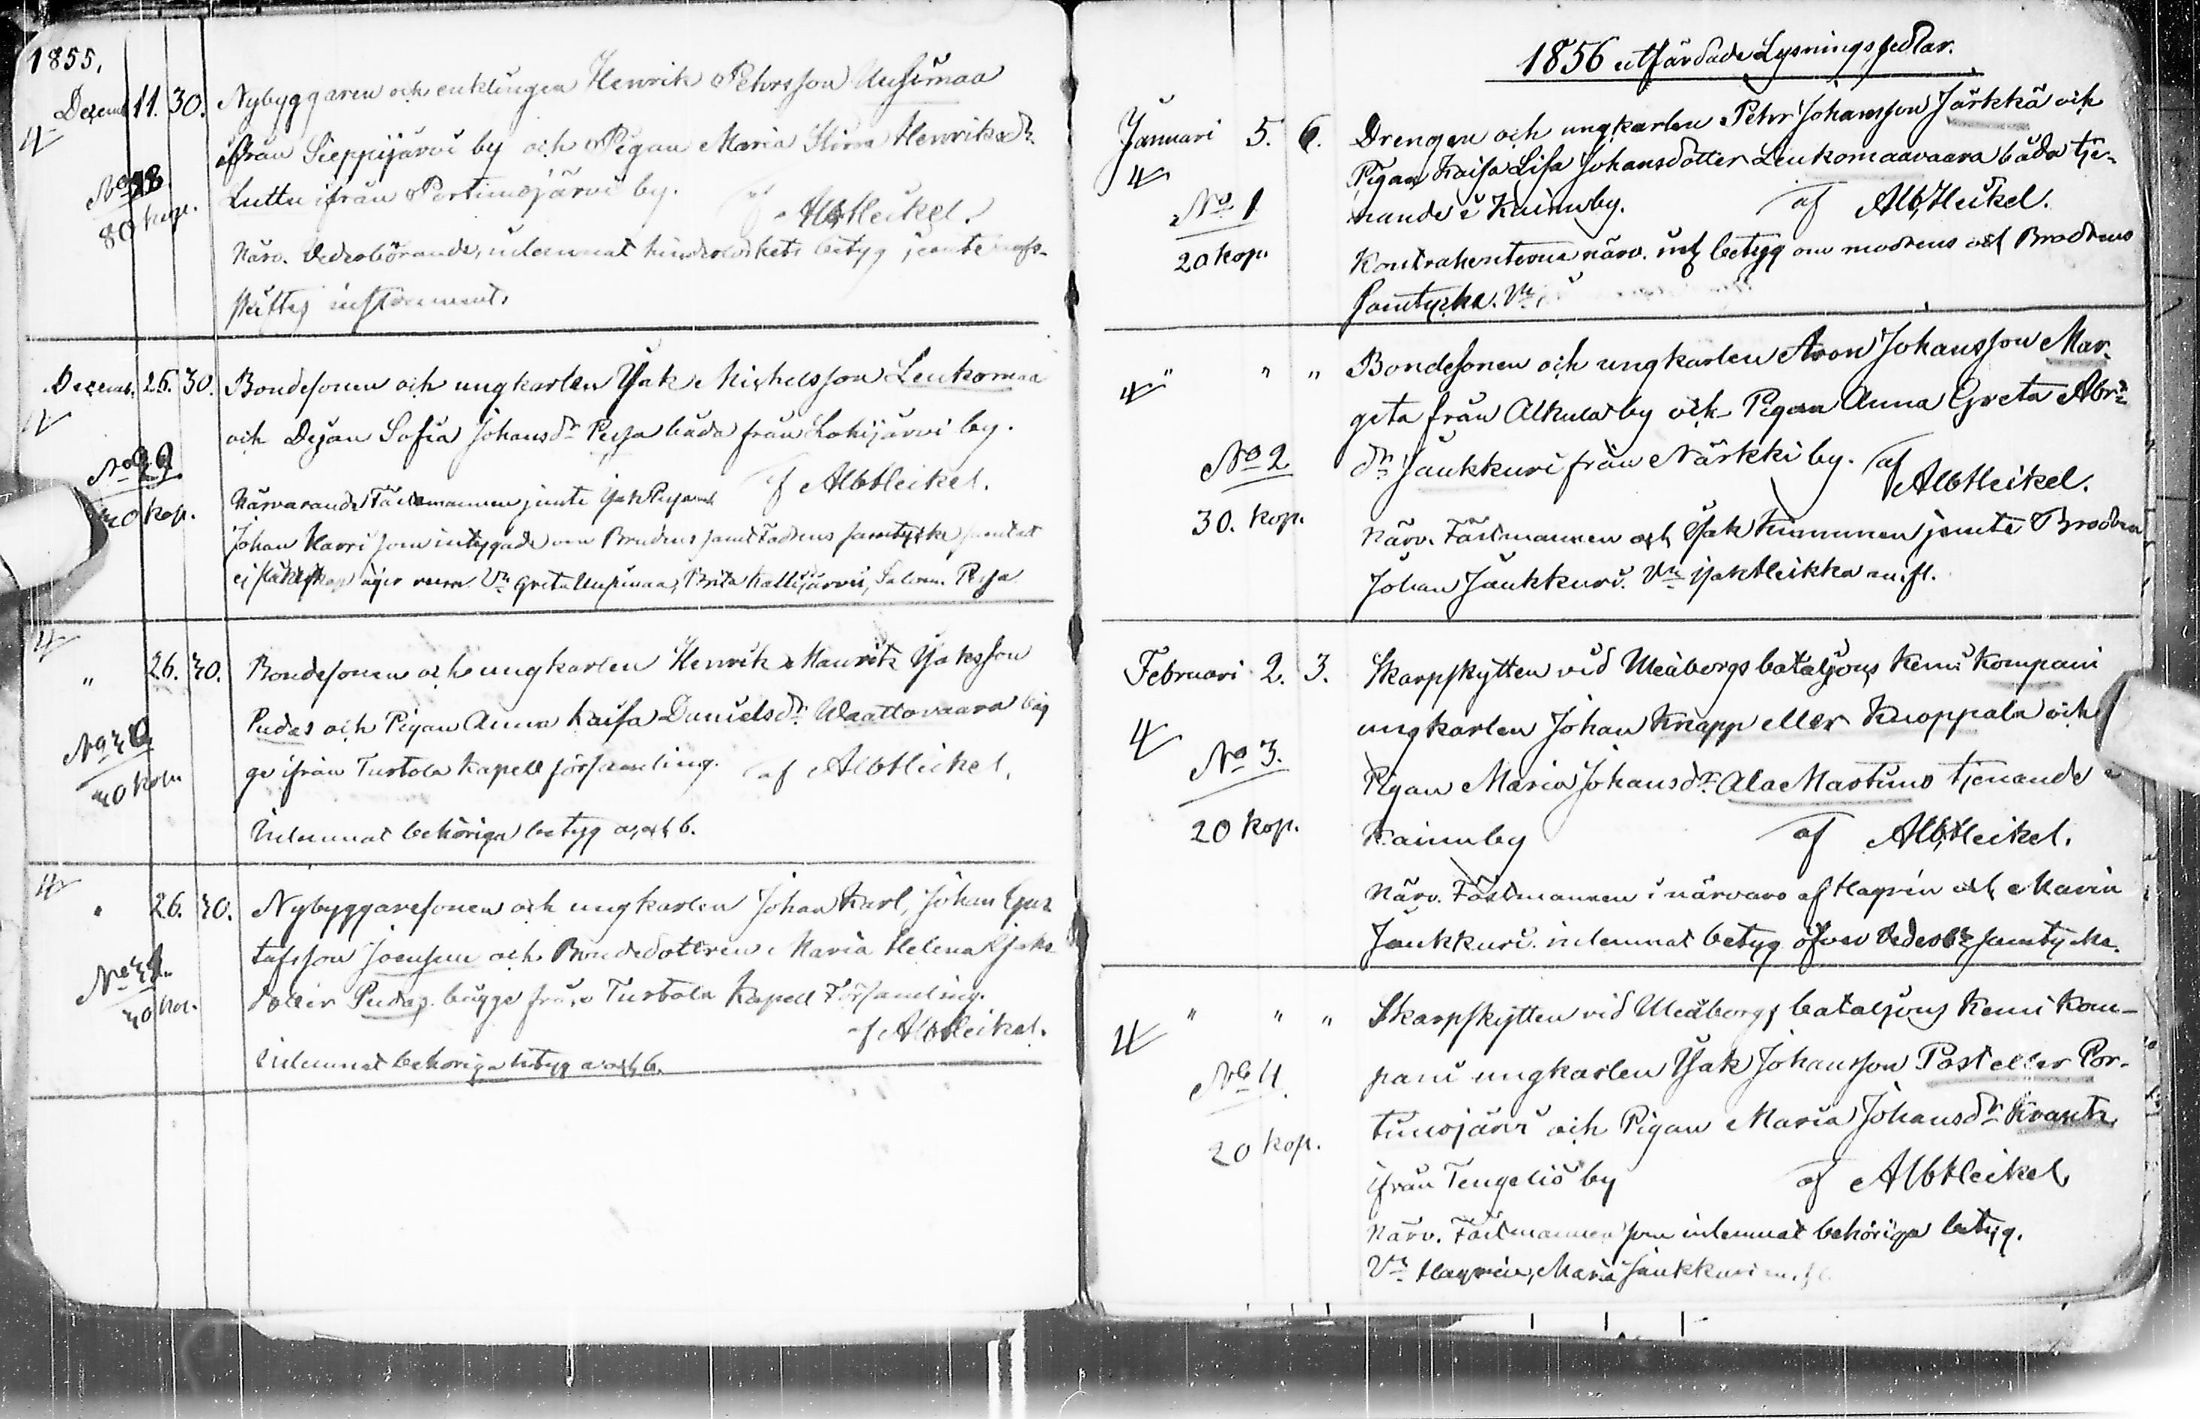 1855.
Decemb. 11. 30. Nybyggaren och enklingen Henrik Pehrsson Uusimaa
ifrån Sieppijärvi by och Pigan Maria Stina Henriksdr
No 28 Luttu ifrån Portimojärvi by. af AlbHeikel.
80 kop. Närv. vederbörande, inlemnat hinderlöshets betyg jemte
skiftes instrument.
Decemb. 26. 30. Bondesonen och ungkarlen Isak Michelsson Leukomaa
och Dejan Sofia Johansdr Pesja båda från Lohijärvi by.
No 29 af AlbHeikel.
kop. Närvarande Fästmannen jemte Isak
Johan Harri som intygade om Brudens samt Fadrens samtycke samt at
ej äger rum Vn Greta Uusimaa, Brita Kallijärvi, Pesja
" 26. 30. Bondesonen och ungkarlen Henrik Mauritz Isaksson
Pudas och Pigan Anna Kaisa Danielsdr Waattovaara båg
No 30 ge ifrån Turtola Kapell församling. af AlbHeikel.
kop. Inlemnat behöriga betyg a, och b.
" 26. 30. Nybyggaresonen och ungkarlen Johan Karl, Johan Gus
tafsson Joensuu och Bondedottren Maria Helena Isaks
No 31. dotter Pudas bägge från Turtola Kapell Församling.
kop. af AlbHeikel.
Inlemnat behöriga betyg a och b.
1856 utfärdade Lysningssedlar.
Januari 5. 6. Drengen och ungkarlen Pehr Johansson Järkkä och
Pigan Kaisa Lisa Johansdotter Leukomaavaara båda tje-
No 1 nande i Kainuby. af AlbHeikel.
20 kop. Kontrahenterna närv. betyg om modrens och Brodrens
samtycke. Vn
" " " Bondesonen och ungkarlen Aron Johansson Mar-
geta från Alkula by och Pigan Anna Greta Abr-
No 2 dr Jänkkuri från Närkki by. af AlbHeikel.
30. kop. Närv. Fästmannen och Isak Kummunen jemte Brodren
Johan Jänkkuri. Vn Isak Heikka m. fl.
Februari 2. 3. Skarpskytten vid Uleåborgs bataljons Kemi Kompani
ungkarlen Johan Knapp eller Knoppala och
No 3. Pigan Maria Johansdr Ala Martimo tjenande i
20 kop. Kainuby af AlbHeikel.
Närv. Fästmannen i närvaro af Hagrén och Maria
Jänkkuri. inlemnat betyg öfver vederbr samtycke.
" " " Skarpskytten vid Uleåborgs bataljons Kemi Kom-
No 4. pani ungkarlen Isak Johansson Post eller Por-
timojärvi och Pigan Maria Johansdr Krantz
20 kop. ifrån Tengeliö by af AlbHeikel
Närv. Fästmannen som inlemnat behöriga betyg.
Vn Hagrén, Maria Jänkkuri m. fl.